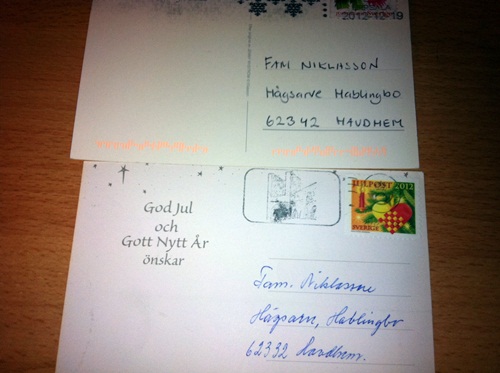 2012-12-19
FAM NIKLASSON
Hägsarve Hablingbo
62342 HAVDHEM
God Jul
och
Gott Nytt År
önskar
JULPOST 2012
SVERIGE
Fam. Niklasson
Hägsarv, Hablingbo
62332 Havdhem.